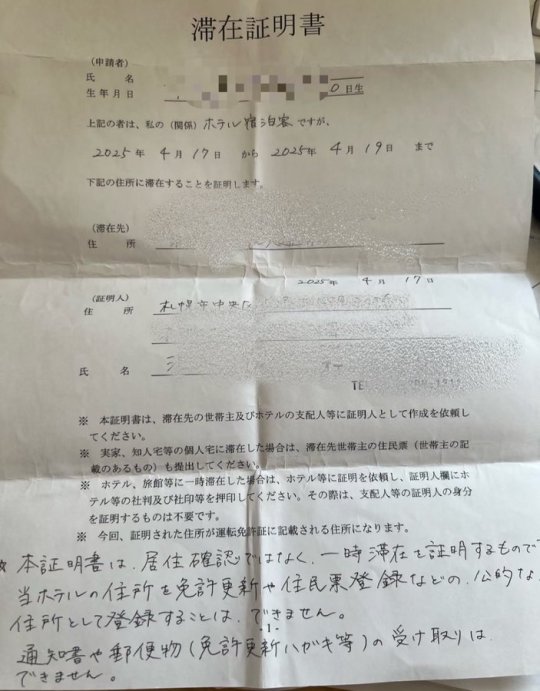 滞在証明書
(申請者)
氏 名
生年月日 0日生
上記の者は、私の（関係）ホテル宿泊客ですが、
2025年 4月17日 から 2025年 4月19日 まで
下記の住所に滞在することを証明します。
(滞在先)
住 所
2025年 4月17日
(証明人)
住 所 札幌市中央区
氏 名
TEL
※ 本証明書は、滞在先の世帯主及びホテルの支配人等に証明人として作成を依頼し
てください。
※ 実家、知人宅等の個人宅に滞在した場合は、滞在先世帯主の住民票（世帯主の記
載のあるもの）も提出してください。
※ ホテル、旅館等に一時滞在した場合は、ホテル等に証明を依頼し、証明人欄にホ
テル等の社判及び社印等を押印してください。その際は、支配人等の証明人の身分
を証明するものは不要です。
※ 今回、証明された住所が運転免許証に記載される住所になります。
☆ 本証明書は、居住確認ではなく、一時滞在を証明するもので
当ホテルの住所を免許更新や住民票登録などの、公的な
住所として登録することは、できません。
-1-
通知書や郵便物(免許更新ハガキ等)の受け取りは
できません。